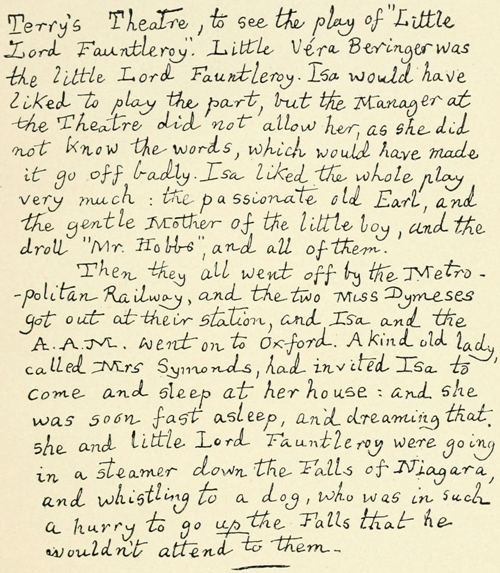 Terry's Theatre, to see the play of "Little
Lord Fauntleroy". Little Véra Beringer was
the little Lord Fauntleroy. Isa would have
liked to play the part, but the Manager at
the Theatre did not allow her, as she did
not know the words, which would have made
it go off badly. Isa liked the whole play
very much : the passionate old Earl, and
the gentle Mother of the little boy, and the
droll "Mr. Hobbs", and all of them.
Then they all went off by the Metro-
-politan Railway, and the two Miss Dymeses
got out at their station, and Isa and the
A.A.M. went on to Oxford. A kind old lady,
called Mrs Symonds, had invited Isa to
come and sleep at her house : and she
was soon fast asleep, and dreaming that
she and little Lord Fauntleroy were going
in a steamer down the Falls of Niagara,
and whistling to a dog, who was in such
a hurry to go up the Falls that he
wouldn't attend to them.